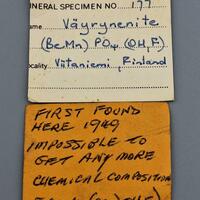 MINERAL SPECIMEN NO 177
Name Väyrynenite
(Be,Mn) PO4 (OH,F)
Locality Viitaniemi, Finland
FIRST FOUND
HERE 1949
IMPOSSIBLE TO
GET ANY MORE
CHEMICAL COMPOSITION